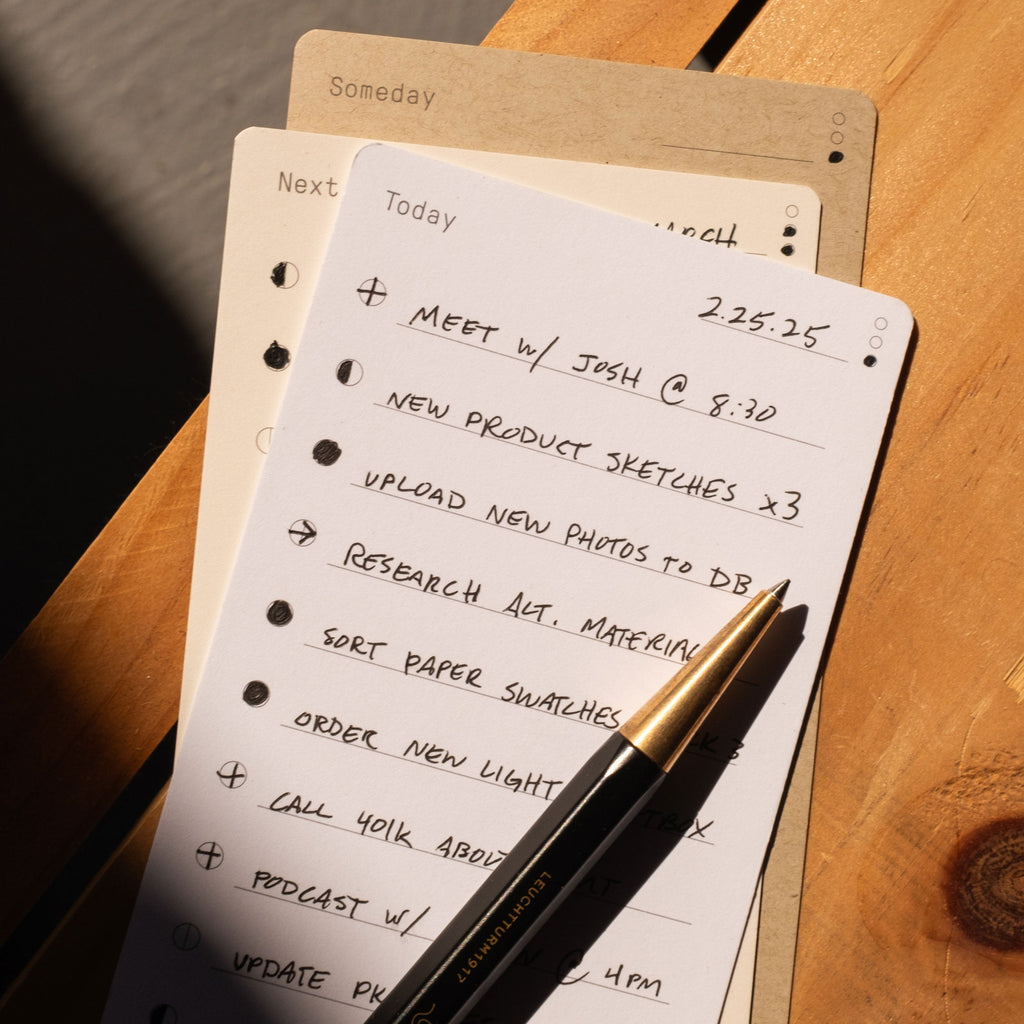 Someday
Next
Today
2.25.25
MEET W/ JOSH @ 8:30
NEW PRODUCT SKETCHES x3
UPLOAD NEW PHOTOS TO DB
RESEARCH ALT.
SORT PAPER SWATCHES
ORDER NEW LIGHT
CALL 401K
PODCAST W/ @ 4PM
UPDATE
LEUCHTTURM1917